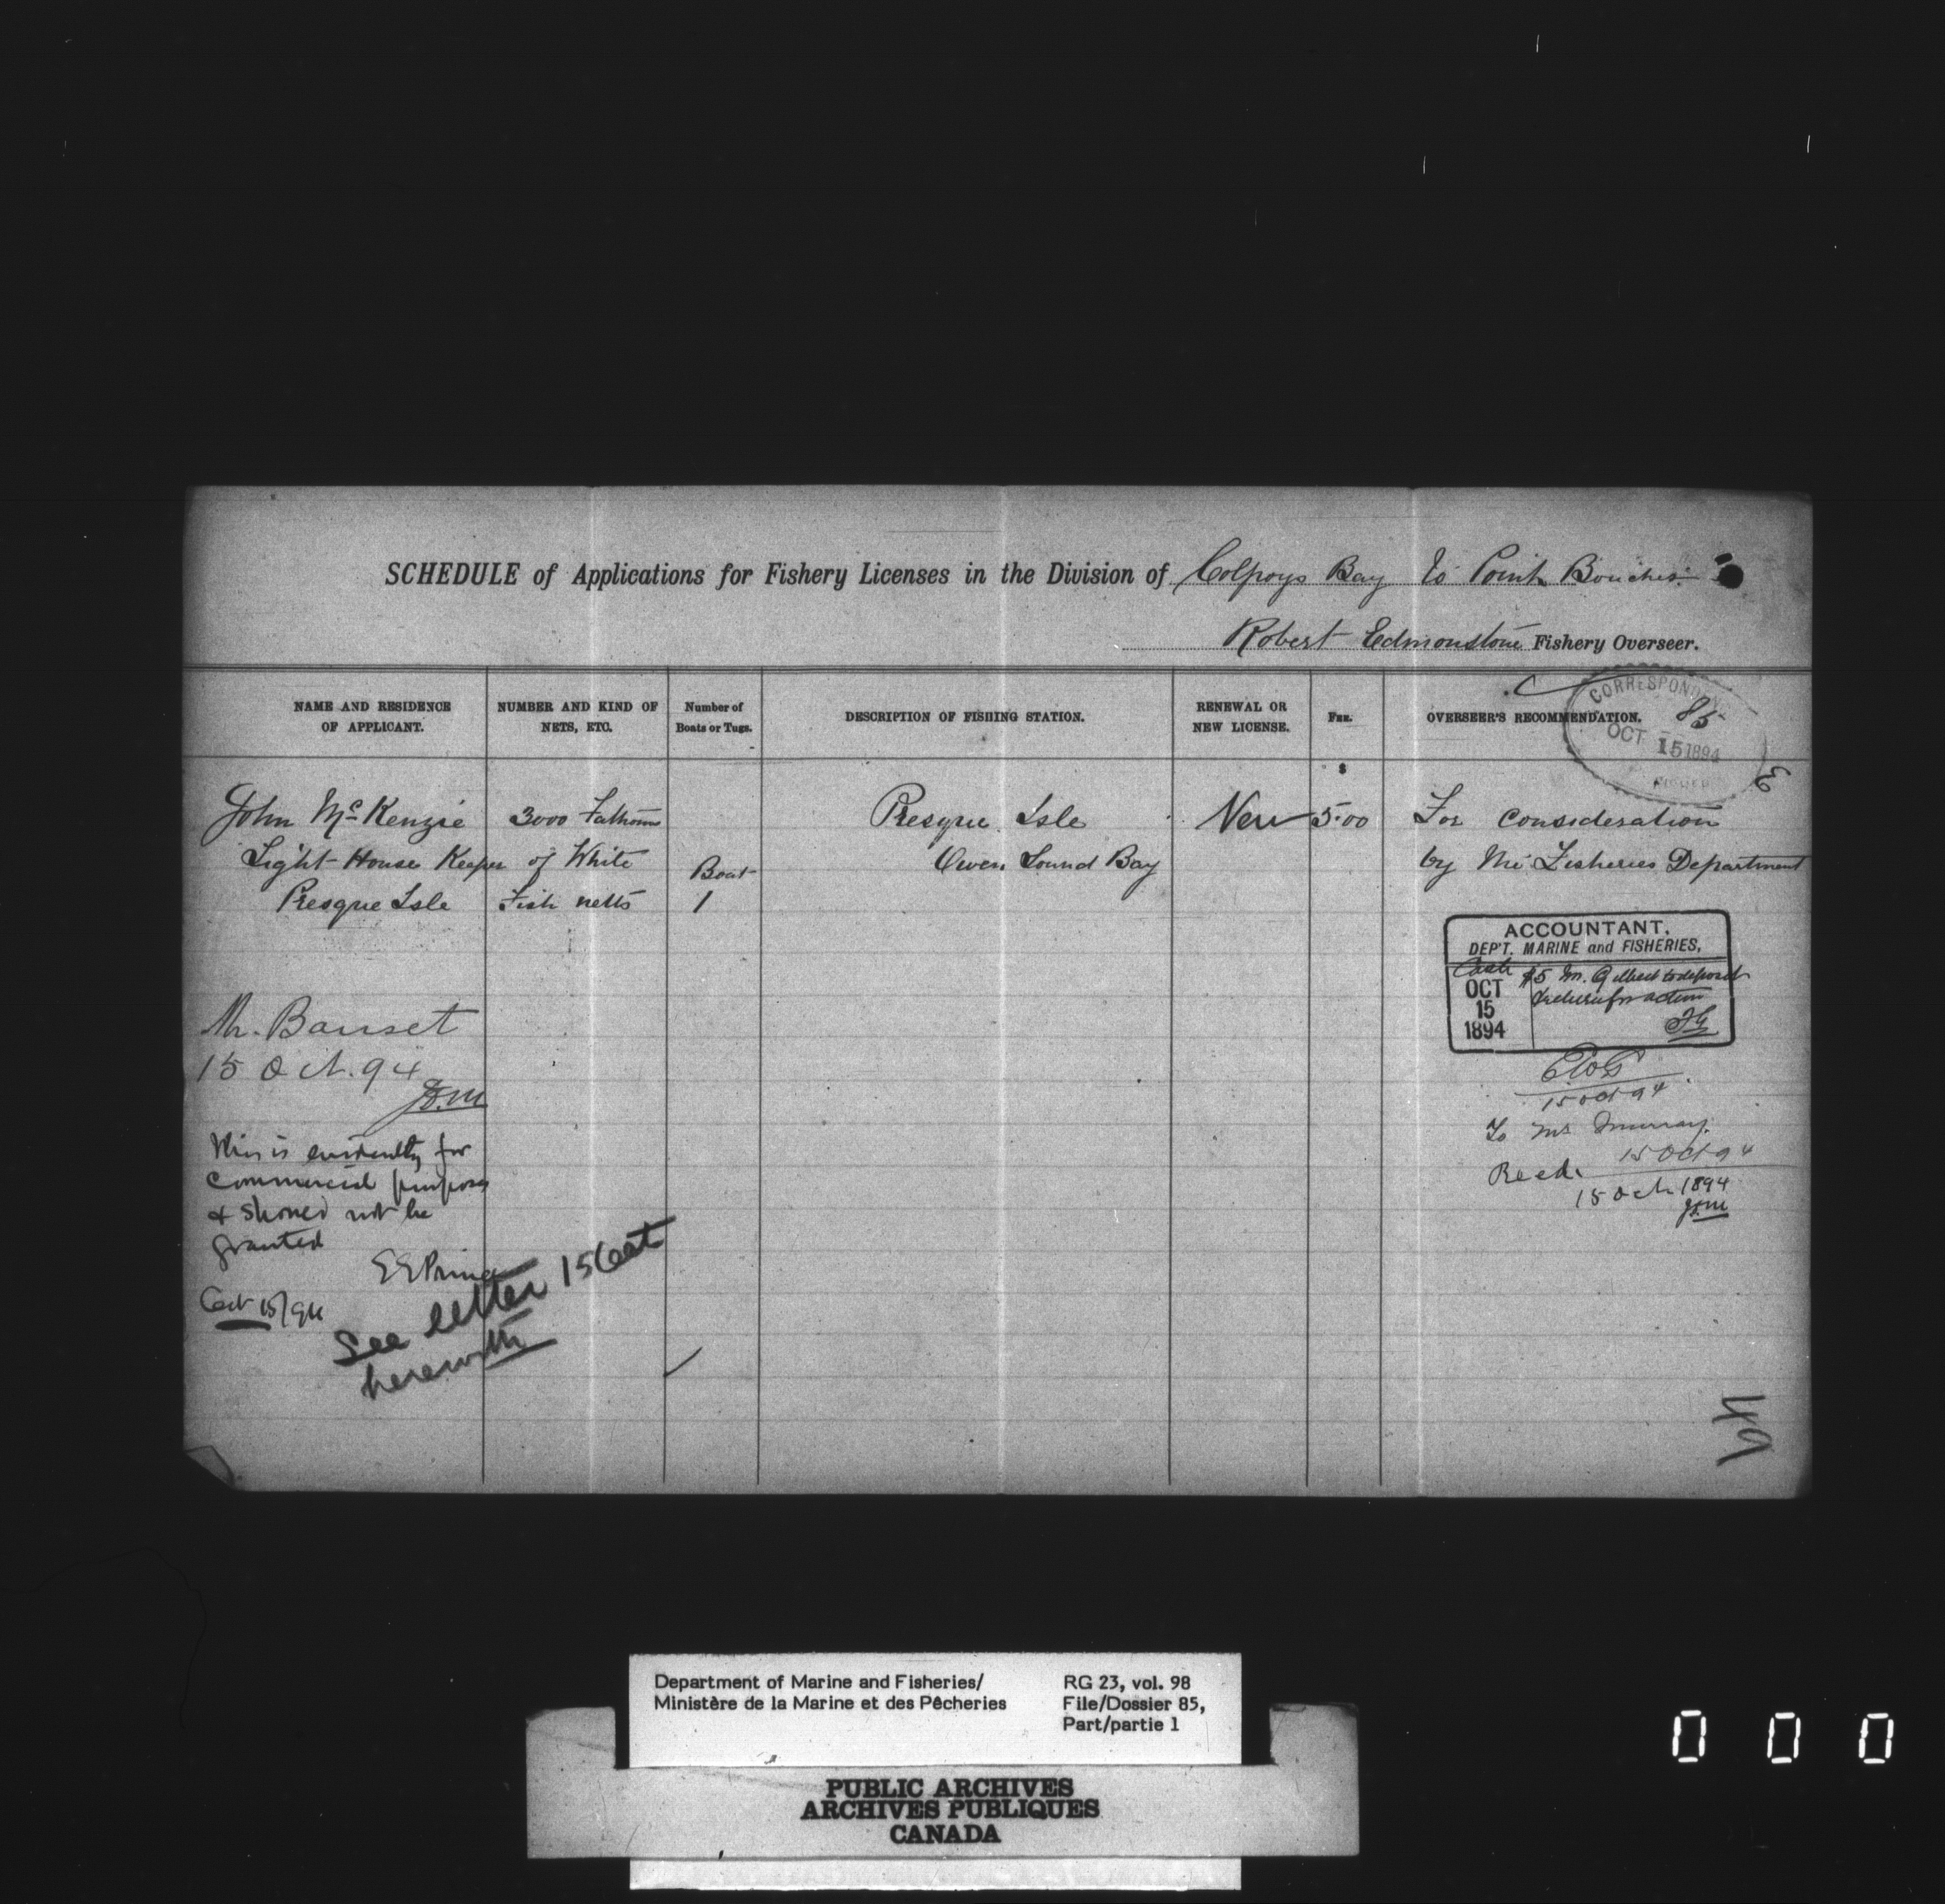 SCHEDULE of Applications for Fishery Licenses in the Division of Colpoys Bay to Point Bouchis
Robert Edmonstone Fishery Overseer.
NAME AND RESIDENCE
OF APPLICANT.
NUMBER AND KIND OF
NETS, ETC.
Number of
Boats or Tugs.
DESCRIPTION OF FISHING STATION.
RENEWAL OR
NEW LICENSE.
FEE.
OVERSEER'S RECOMMENDATION.
CORRESPONDENCE
85
OCT 15 1894
$
John McKenzie 3000 Fathoms Presque Isle New 5.00 For Consideration
Light House Keeper of White Boat Owen Sound Bay by the Fisheries Department
Presque Isle Fish netts 1
ACCOUNTANT,
DEP'T. MARINE and FISHERIES,
Cash
OCT
15
1894
$5 Mr. Gilbert to deposit
action
Mr. Bauset
15 Oct. 94
J.S.M
This is evidently for
commercial purposes
& should not be
granted
E E Prince
Oct 15/94
See letter 15 Oct
herewith
15 Oct 94
To Mr Murray.
15 Oct 94
Recd.
15 Oct 1894
49
Department of Marine and Fisheries/
Ministère de la Marine et des Pêcheries
RG 23, vol. 98
File/Dossier 85,
Part/partie 1
PUBLIC ARCHIVES
ARCHIVES PUBLIQUES
CANADA
0 0 0